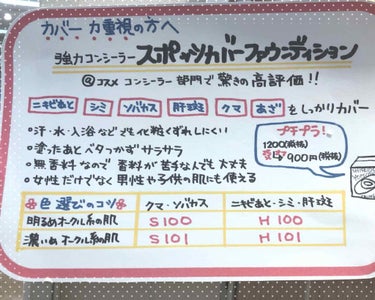 カバー力重視の方へ
強力コンシーラー スポッツカバーファウンディション
@コスメ コンシーラー部門で驚きの高評価!!
ニキビあと シミ ソバカス 肝斑 クマ あざ をしっかりカバー
・汗・水・入浴などでも化粧くずれしにくい
・塗ったあとベタつかずサラサラ
・無香料なので香料が苦手な人でも大丈夫
・女性だけでなく男性や子供の肌にも使える
プチプラ!
1200(税抜)
900円(税抜)
色選びのコツ クマ・ソバカス ニキビあと・シミ・肝斑
明るめオークル系の肌 S100 H100
濃いめオークル系の肌 S101 H101